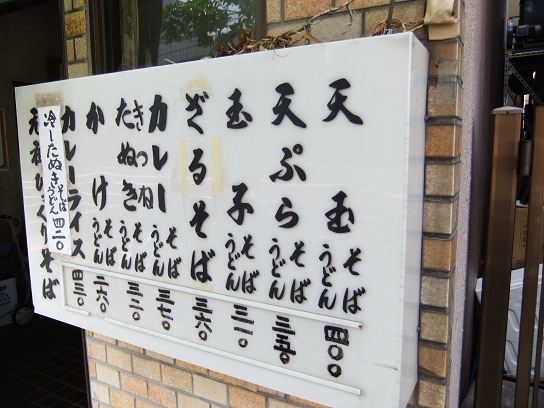 天玉そばうどん 四〇〇
天ぷらそばうどん 三五〇
玉子そばうどん 三一〇
ざるそば 三六〇
カレーそばうどん 三七〇
きつねたぬきそばうどん 三二〇
かけそばうどん 二六〇
カレーライス 四三〇
冷したぬきそばうどん 四二〇